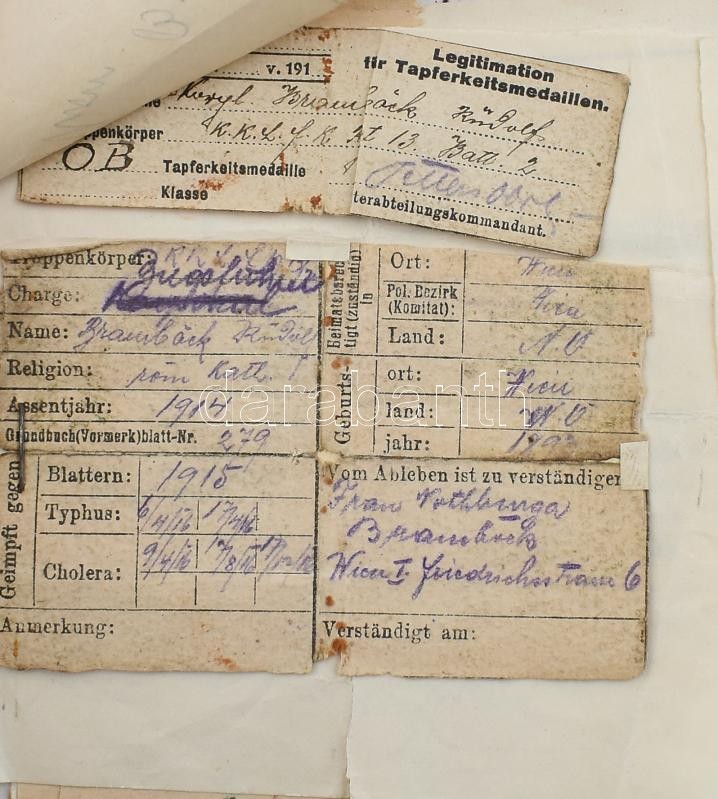 Legitimation
für Tapferkeitsmedaillen.
v. 191
Bramböck Rudolf
ppenkörper K.K.L.J.R. Nt 13 Batt 2
OB Tapferkeitsmedaille
Klasse
terabteilungskommandant.
Truppenkörper:
Zugsführer
Charge:
Name: Bramböck Rudolf
Religion: röm kath.
Assentjahr: 1914
Grundbuch(Vormerk)blatt-Nr. 279
Heimatsberechtigt (zuständig) in
Ort: Wien
Pol. Bezirk
(Komitat): Wien
Land: N.Ö
Geburts-
ort: Wien
land: N.Ö
jahr:
Geimpft gegen
Blattern: 1915
Typhus: 9/4/16 17/4/16
Cholera: 9/4/16
Anmerkung:
Vom Ableben ist zu verständigen
Frau
Bramböck
Wien I. Friedrichstrasse 6
Verständigt am:
darabanth